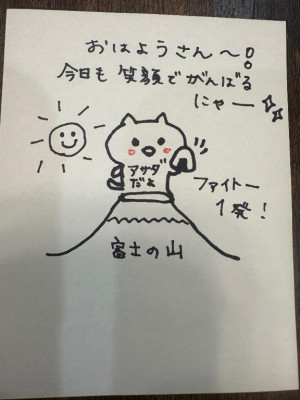 おはようさん〜!
今日も笑顔でがんばる
にゃー
アサダ
だよ
ファイトー
1発!
富士の山